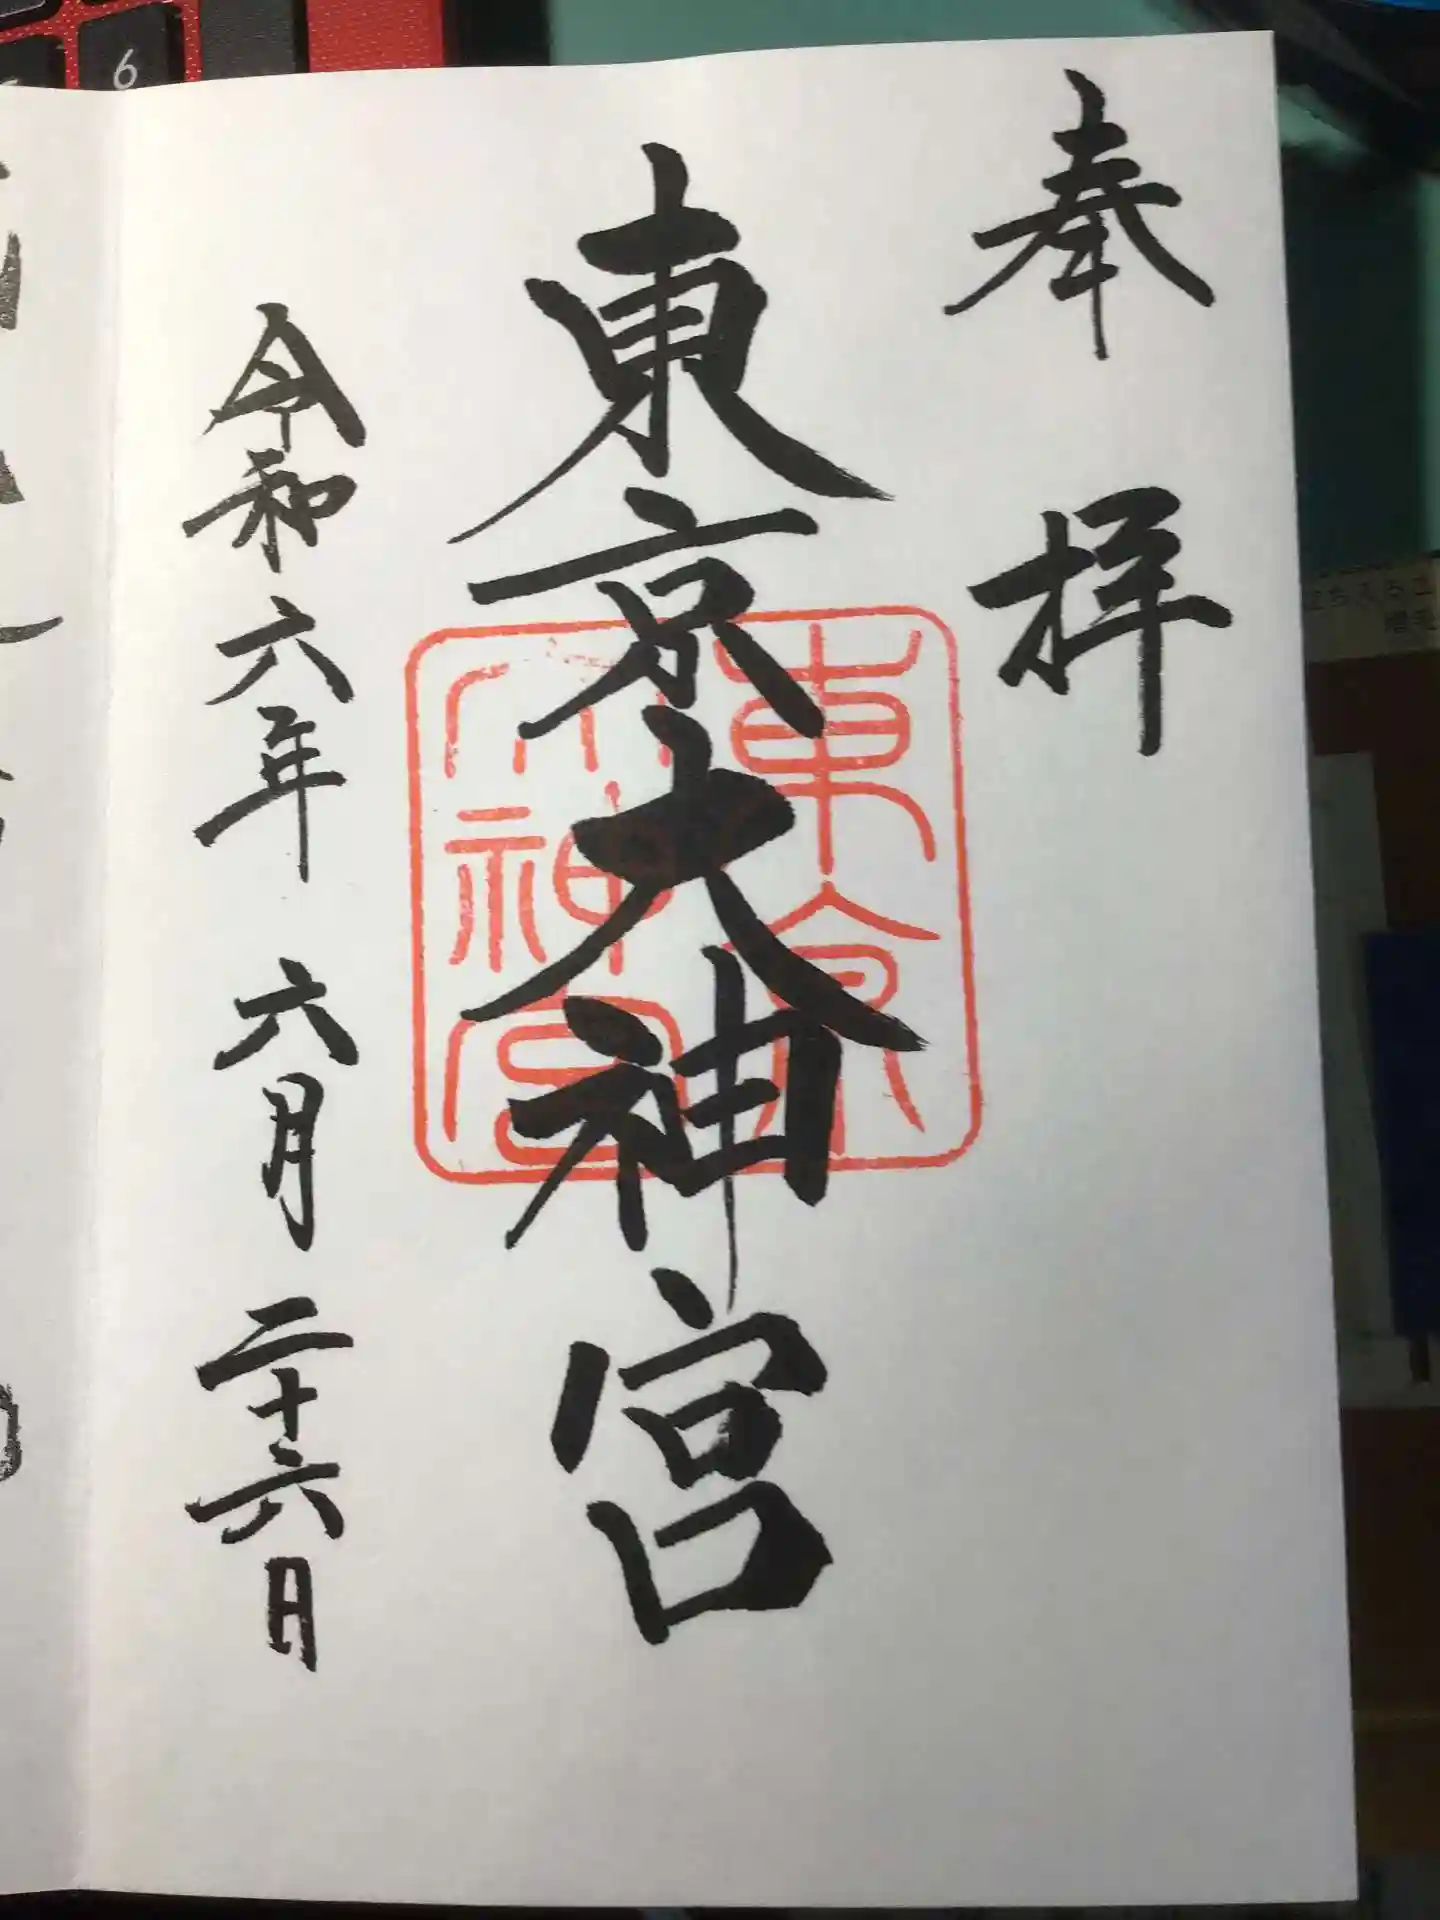 奉拝
東京大神宮
東京大神宮
令和六年 六月 二十六日
6